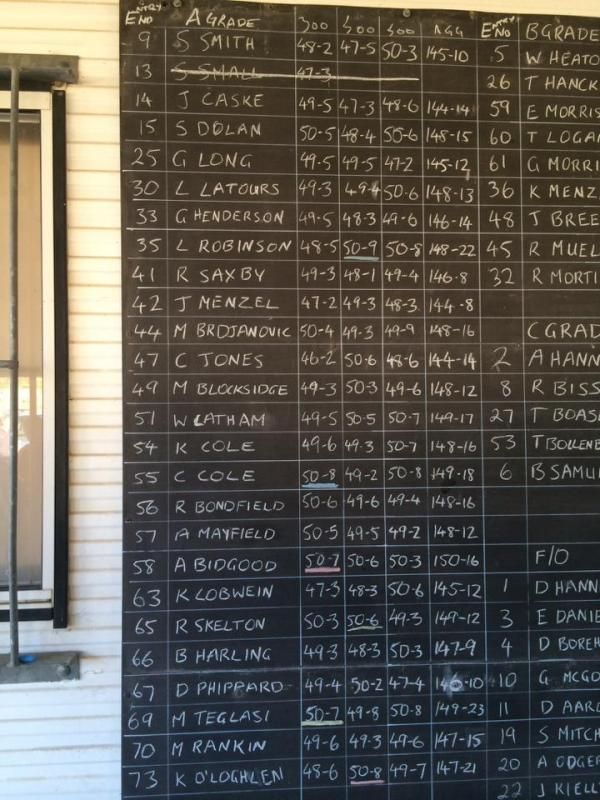 ENTRY ENO A GRADE 300 300 300 AGG ENTRY E'NO B GRADE
9 S SMITH 48-2 47-5 50-3 145-10 5 W HEATO
13 S SMALL 47-3 26 T HANCK
14 J CASKE 49-5 47-3 48-6 144-14 59 E MORRIS
15 S DOLAN 50-5 48-4 50-6 148-15 60 T LOGAN
25 G LONG 49-5 49-5 47-2 145-12 61 G MORRI
30 L LATOURS 49-3 49-4 50-6 148-13 36 K MENZ
33 G HENDERSON 49-5 48-3 49-6 146-14 48 J BREE
35 L ROBINSON 48-5 50-9 50-8 148-22 45 R MUEL
41 R SAXBY 49-3 48-1 49-4 146-8 32 R MORTI
42 J MENZEL 47-2 49-3 48-3 144-8
44 M BRDJANOVIC 50-4 49-3 49-9 148-16 C GRAD
47 C TONES 46-2 50-6 48-6 144-14 2 A HANN
49 M BLOCKSIDGE 49-3 50-3 49-6 148-12 8 R BISS
51 W LATHAM 49-5 50-5 50-7 149-17 27 T BOAS
54 K COLE 49-6 49-3 50-7 148-16 53 T BOLLENB
55 C COLE 50-8 49-2 50-8 149-18 6 B SAMU
56 R BONDFIELD 50-6 49-6 49-4 148-16
57 A MAYFIELD 50-5 49-5 49-2 148-12
58 A BIDGOOD 50-7 50-6 50-3 150-16 F/O
63 K LOBWEIN 47-3 48-3 50-6 145-12 1 D HANN
65 R SKELTON 50-3 50-6 49-3 149-12 3 E DANIE
66 B HARLING 49-3 48-3 50-3 147-9 4 D BOREH
67 D PHIPPARD 49-4 50-2 47-4 146-10 10 G MCGO
69 M TEGLASI 50-7 49-8 50-8 149-23 11 D AARL
70 M RANKIN 49-6 49-3 49-6 147-15 19 S MITCH
73 K O'LOGHLEN 48-6 50-8 49-7 147-21 20 A ODGER
22 J KIELL